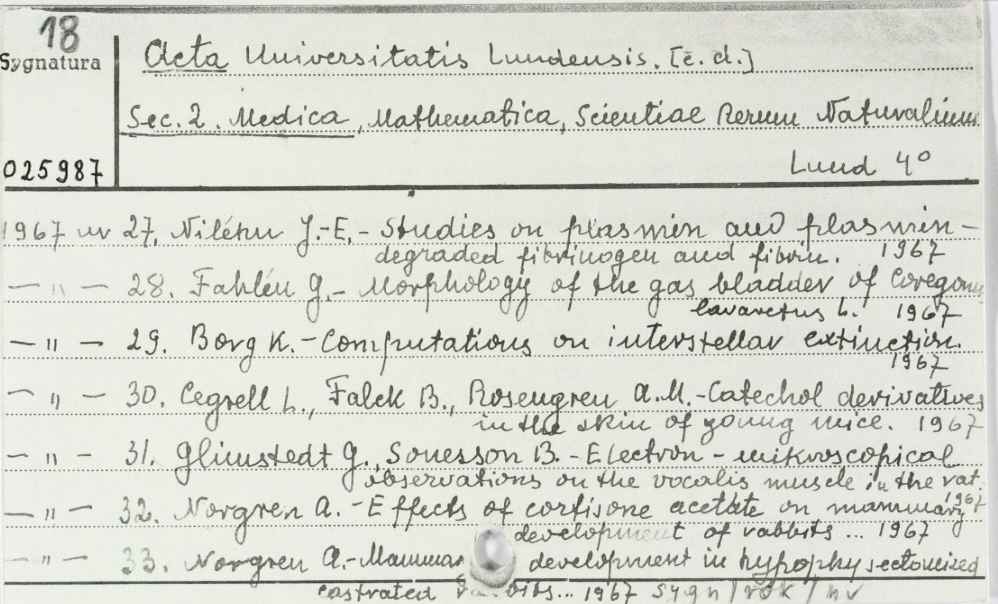 18
Sygnatura
Acta Universitatis Lundensis. [c.d.]
Sec. 2. Medica, Mathematica, Scientiae Rerum Naturalium
025987
Lund 4°
1967 nr 27. Niléhn J.-E. - Studies on plasmin and plasmin-
degraded fibrinogen and fibrin. 1967
— " — 28. Fahlén G. - Morphology of the gas bladder of Coregonus
lavaretus L. 1967
— " — 29. Borg K. - Computations on interstellar extinction.
1967
— " — 30. Cegrell L., Falck B., Rosengren A.M. - Catechol derivatives
in the skin of young mice. 1967
— " — 31. Glimstedt G., Sonesson B. - Electron-mikroscopical
observations on the vocalis muscle in the rat.
1967
— " — 32. Norgren A. - Effects of cortisone acetate on mammary
development of rabbits ... 1967
— " — 33. Norgren A. - Mammar development in hypophysectomized
castrated ... 1967 sygn/rok/nr